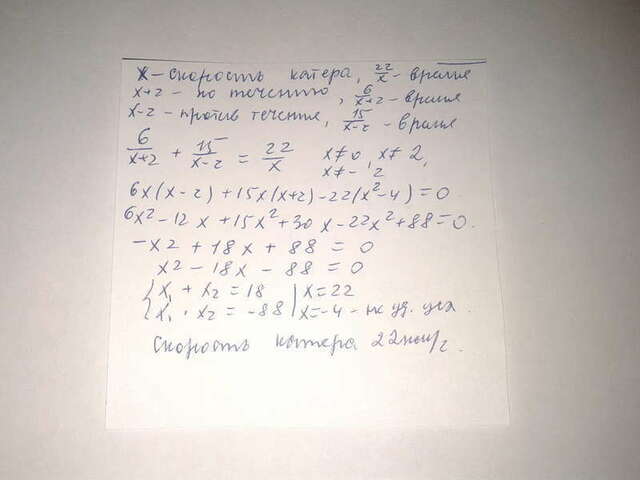 x – скорость катера, 22/x – время
x+2 – по течению, 6/x+2 – время
x-2 – против течения, 15/x-2 – время
6/x+2 + 15/x-2 = 22/x x≠0, x≠2,
x≠-2
6x(x-2)+15x(x+2)-22(x²-4)=0
6x²-12x+15x²+30x-22x²+88=0.
-x2+18x+88=0
x2-18x-88=0
{x₁+x₂=18 | x=22
{x₁·x₂=-88 | x=-4 – не уд. усл.
Скорость катера 22км/ч.